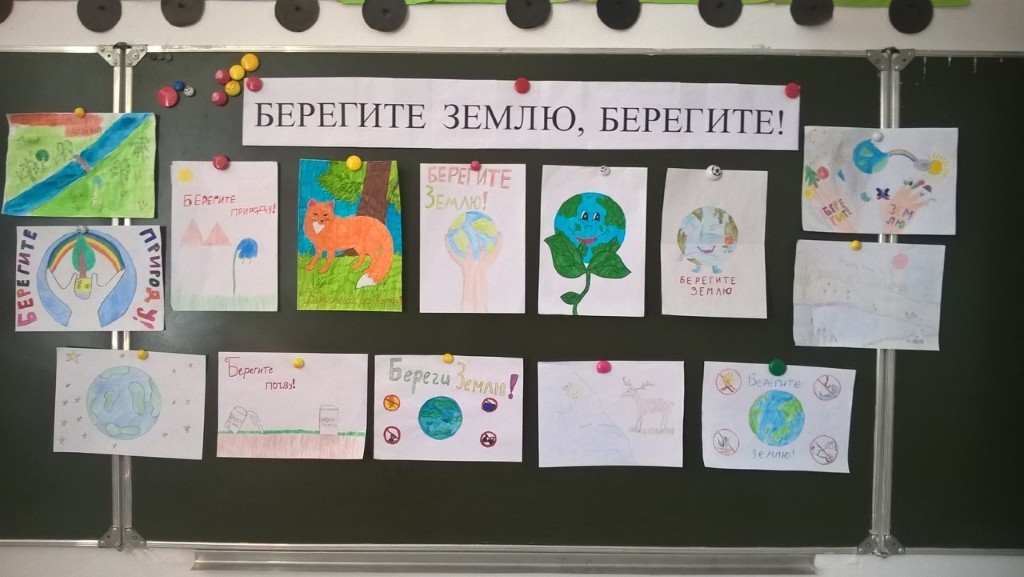 БЕРЕГИТЕ ЗЕМЛЮ, БЕРЕГИТЕ!
БЕРЕГИТЕ
ПРИРОДУ!
БЕРЕГИТЕ
ЗЕМЛЮ!
БЕРЕГИТЕ
ЗЕМЛЮ
БЕРЕ
ГИТЕ
ЗЕМ
ЛЮ
БЕРЕГИТЕ
ПРИРОДУ!
Берегите
почву!
Береги Землю!
БЕРЕГИТЕ
ЗЕМЛЮ!